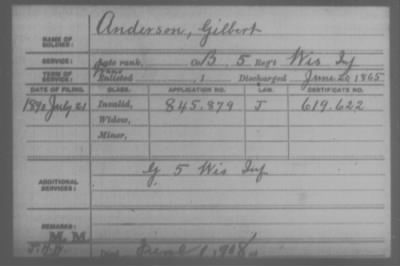 NAME OF SOLDIER: Anderson, Gilbert
SERVICE: Late rank, Co. B, 5 Reg't Wis Inf
TERM OF SERVICE: Enlisted 1 Discharged June 20, 1865
DATE OF FILING. CLASS. APPLICATION NO. LAW. CERTIFICATE NO.
1890 July 21 Invalid, 845.879 J 619.622
Widow,
Minor,
ADDITIONAL SERVICES: G 5 Wis Inf
REMARKS:
M. M.